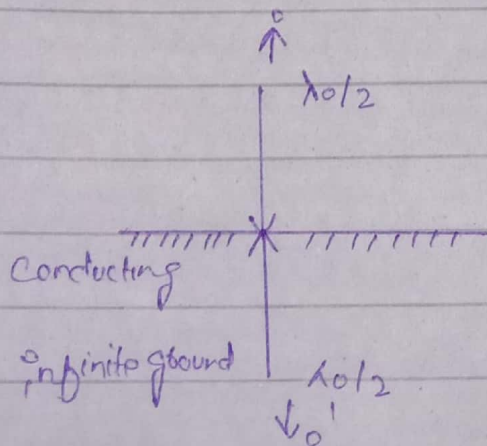 i
λ0/2
Conducting
infinite ground
λ0/2
i'